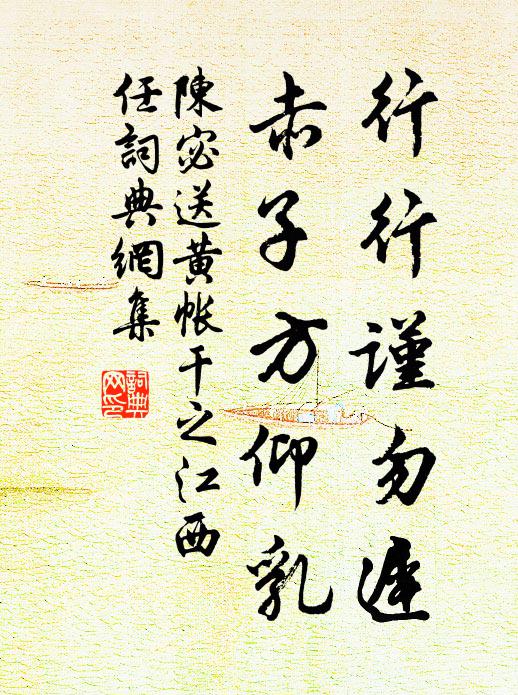 行行謹勿遲
赤子方仰乳
陳宓送黄帐干之江西
任詞典網集
詞典
网印